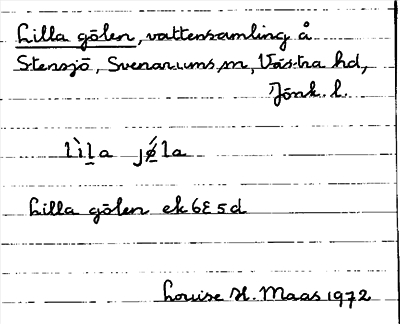 Lilla gölen, vattensamling å
Stensjö, Svenarums sn, Västra hd,
Jönk. l.
lìl̲a jǿ̲la
Lilla gölen ek 6E5d
Louise H. Maas 1972